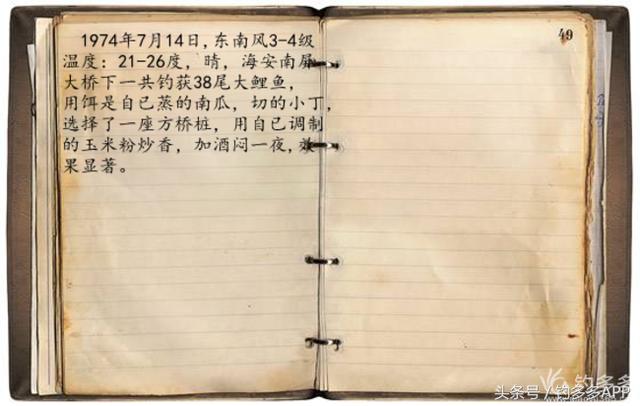 1974年7月14日,东南风3-4级
温度：21-26度，晴，海安南屏
大桥下一共钓获38尾大鲤鱼，
用饵是自己蒸的南瓜，切的小丁，
选择了一座方桥桩，用自己调制
的玉米粉炒香，加酒闷一夜，效
果显著。
49
钓多多
头条号／钓多多APP